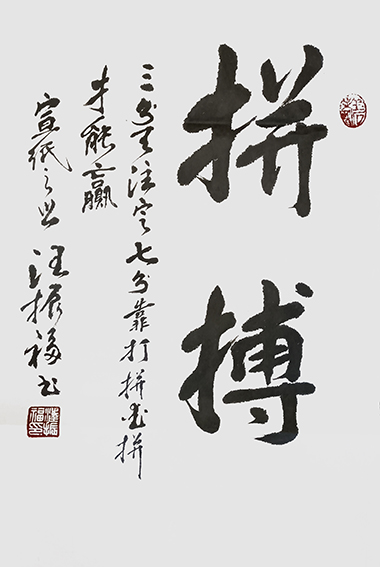 拼搏
三分天注定七分靠打拼爱拼
才能赢
宣纸之
汪振福书
汪振福印